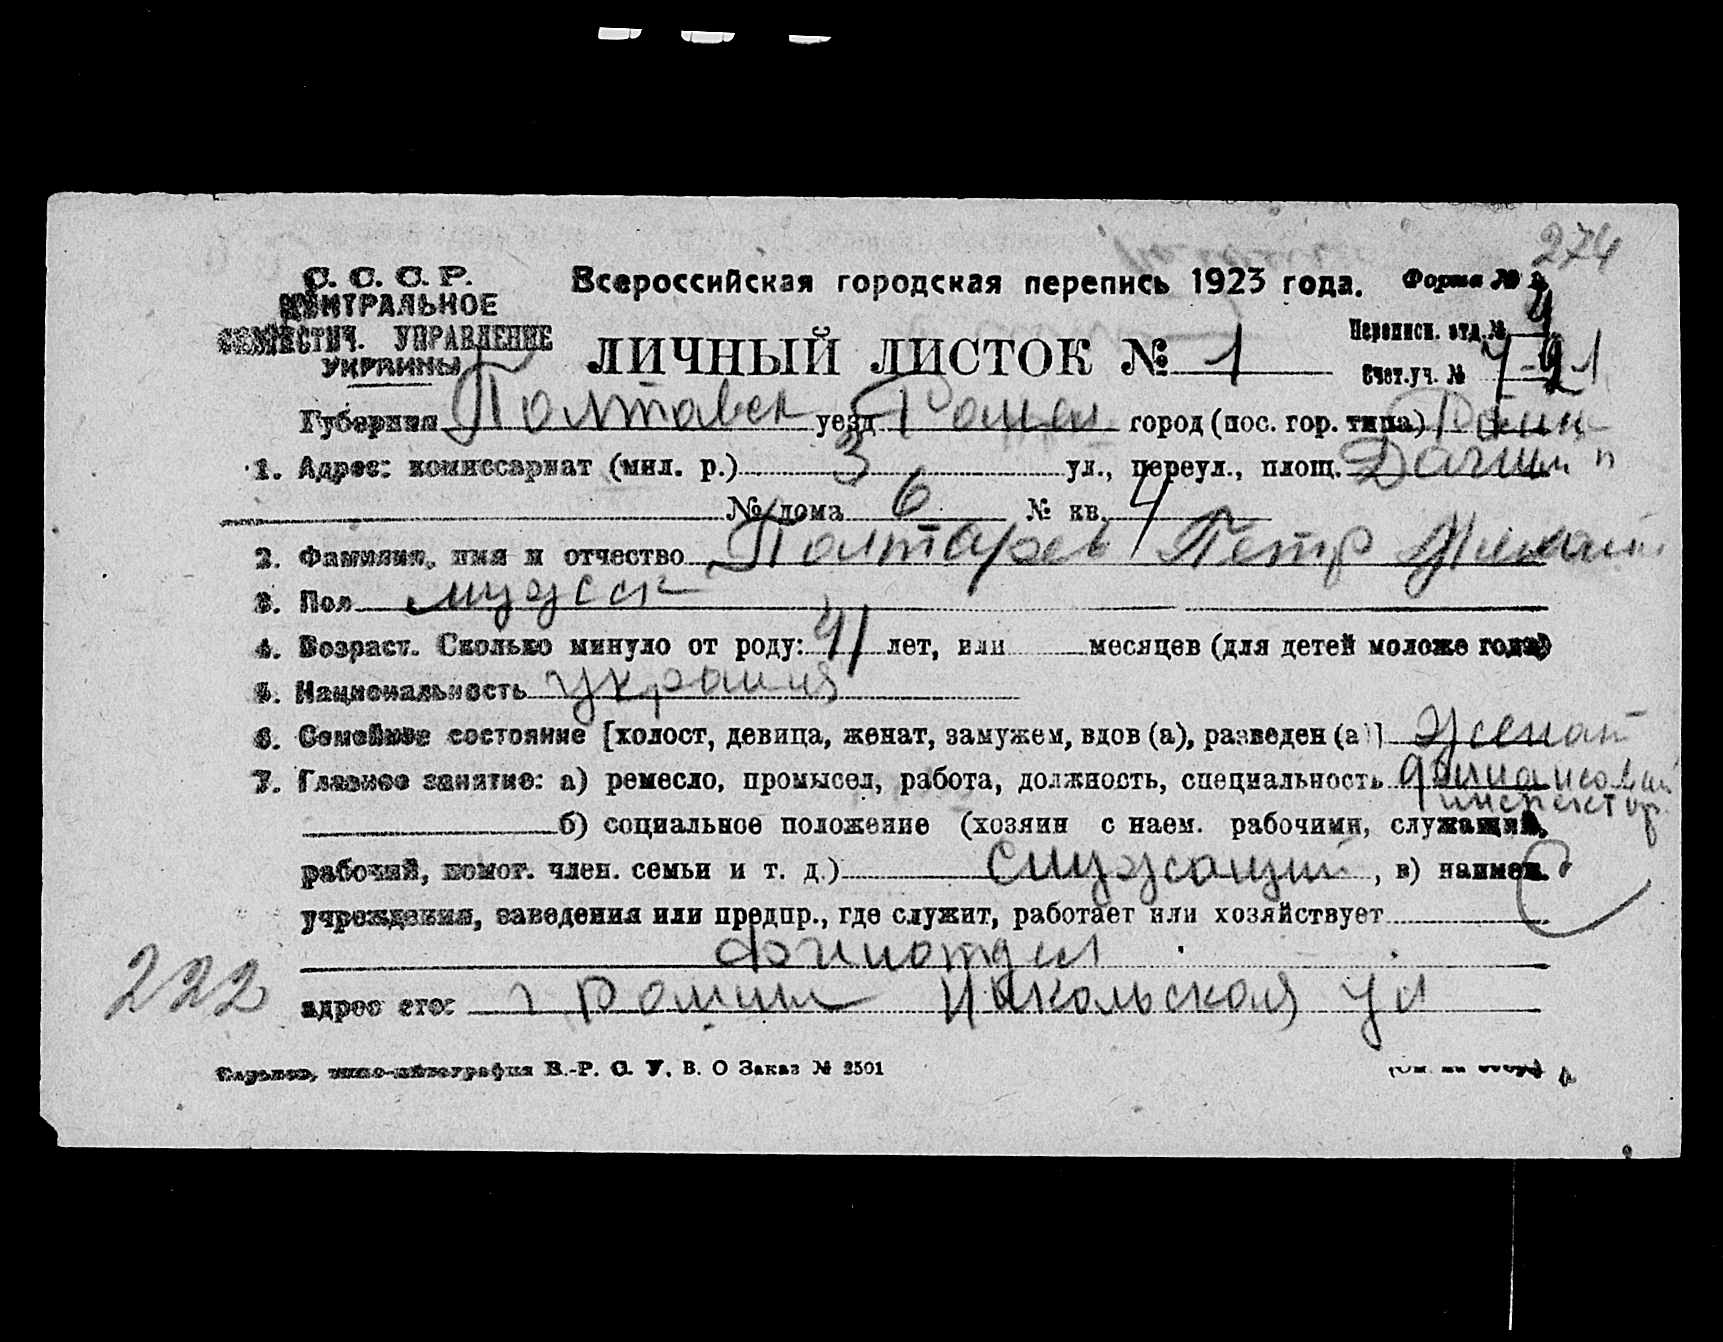 274
С. С. С. Р.
ЦЕНТРАЛЬНОЕ
СТАТИСТИЧ. УПРАВЛЕНИЕ
УКРАИНЫ
Всероссийская городская перепись 1923 года.
Форма №
ЛИЧНЫЙ ЛИСТОК № 1
Переписн. отд. №
Счет. уч. №
Губерния Полтавск уезд Ромен город (пос. гор. типа) Ромны
1. Адрес: комиссариат (мил. р.) 3 ул., переул., площ.
№ дома 6 № кв. 4
2. Фамилия, имя и отчество Полтарев Петр
3. Пол мужск
4. Возраст. Сколько минуло от роду: 41 лет, или месяцев (для детей моложе года)
5. Национальность
6. Семейное состояние [холост, девица, женат, замужем, вдов (а), разведен (а)] женат
7. Главное занятие: а) ремесло, промысел, работа, должность, специальность финансовый
инспектор
б) социальное положение (хозяин с наем. рабочими, служащий,
рабочий, помог. член. семьи и т. д.) служащий, в) наимен.
учреждения, заведения или предпр., где служит, работает или хозяйствует
Финотдел
222
адрес его: г Ромны Никольская ул
Харьков, типо-литография В.-Р. С. У. В. О Заказ № 2501